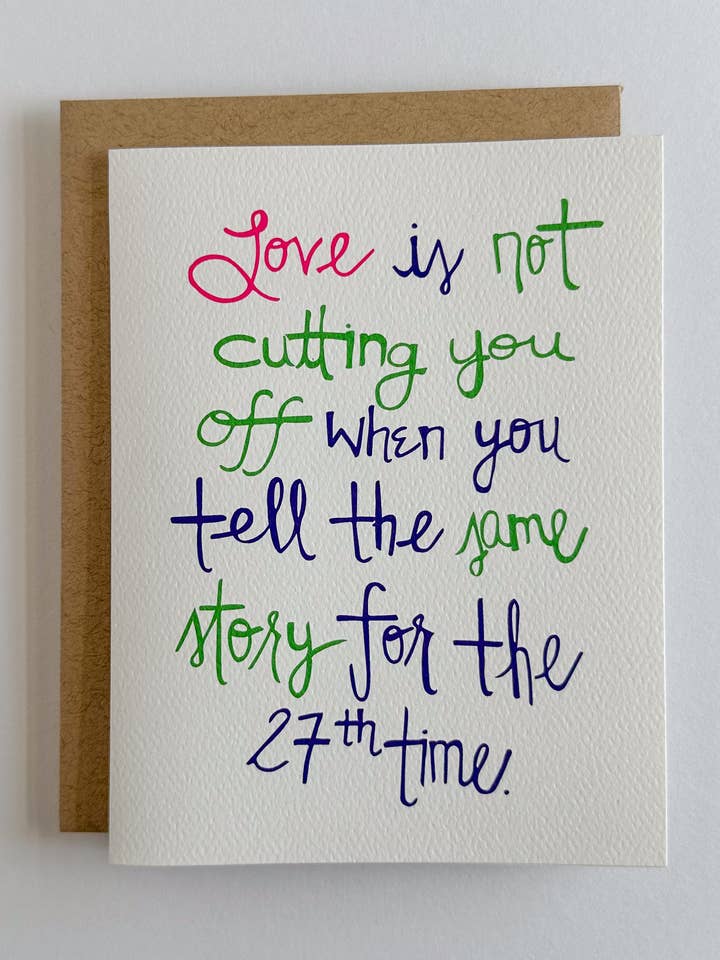 Love is not
cutting you
off when you
tell the same
story for the
27th time.